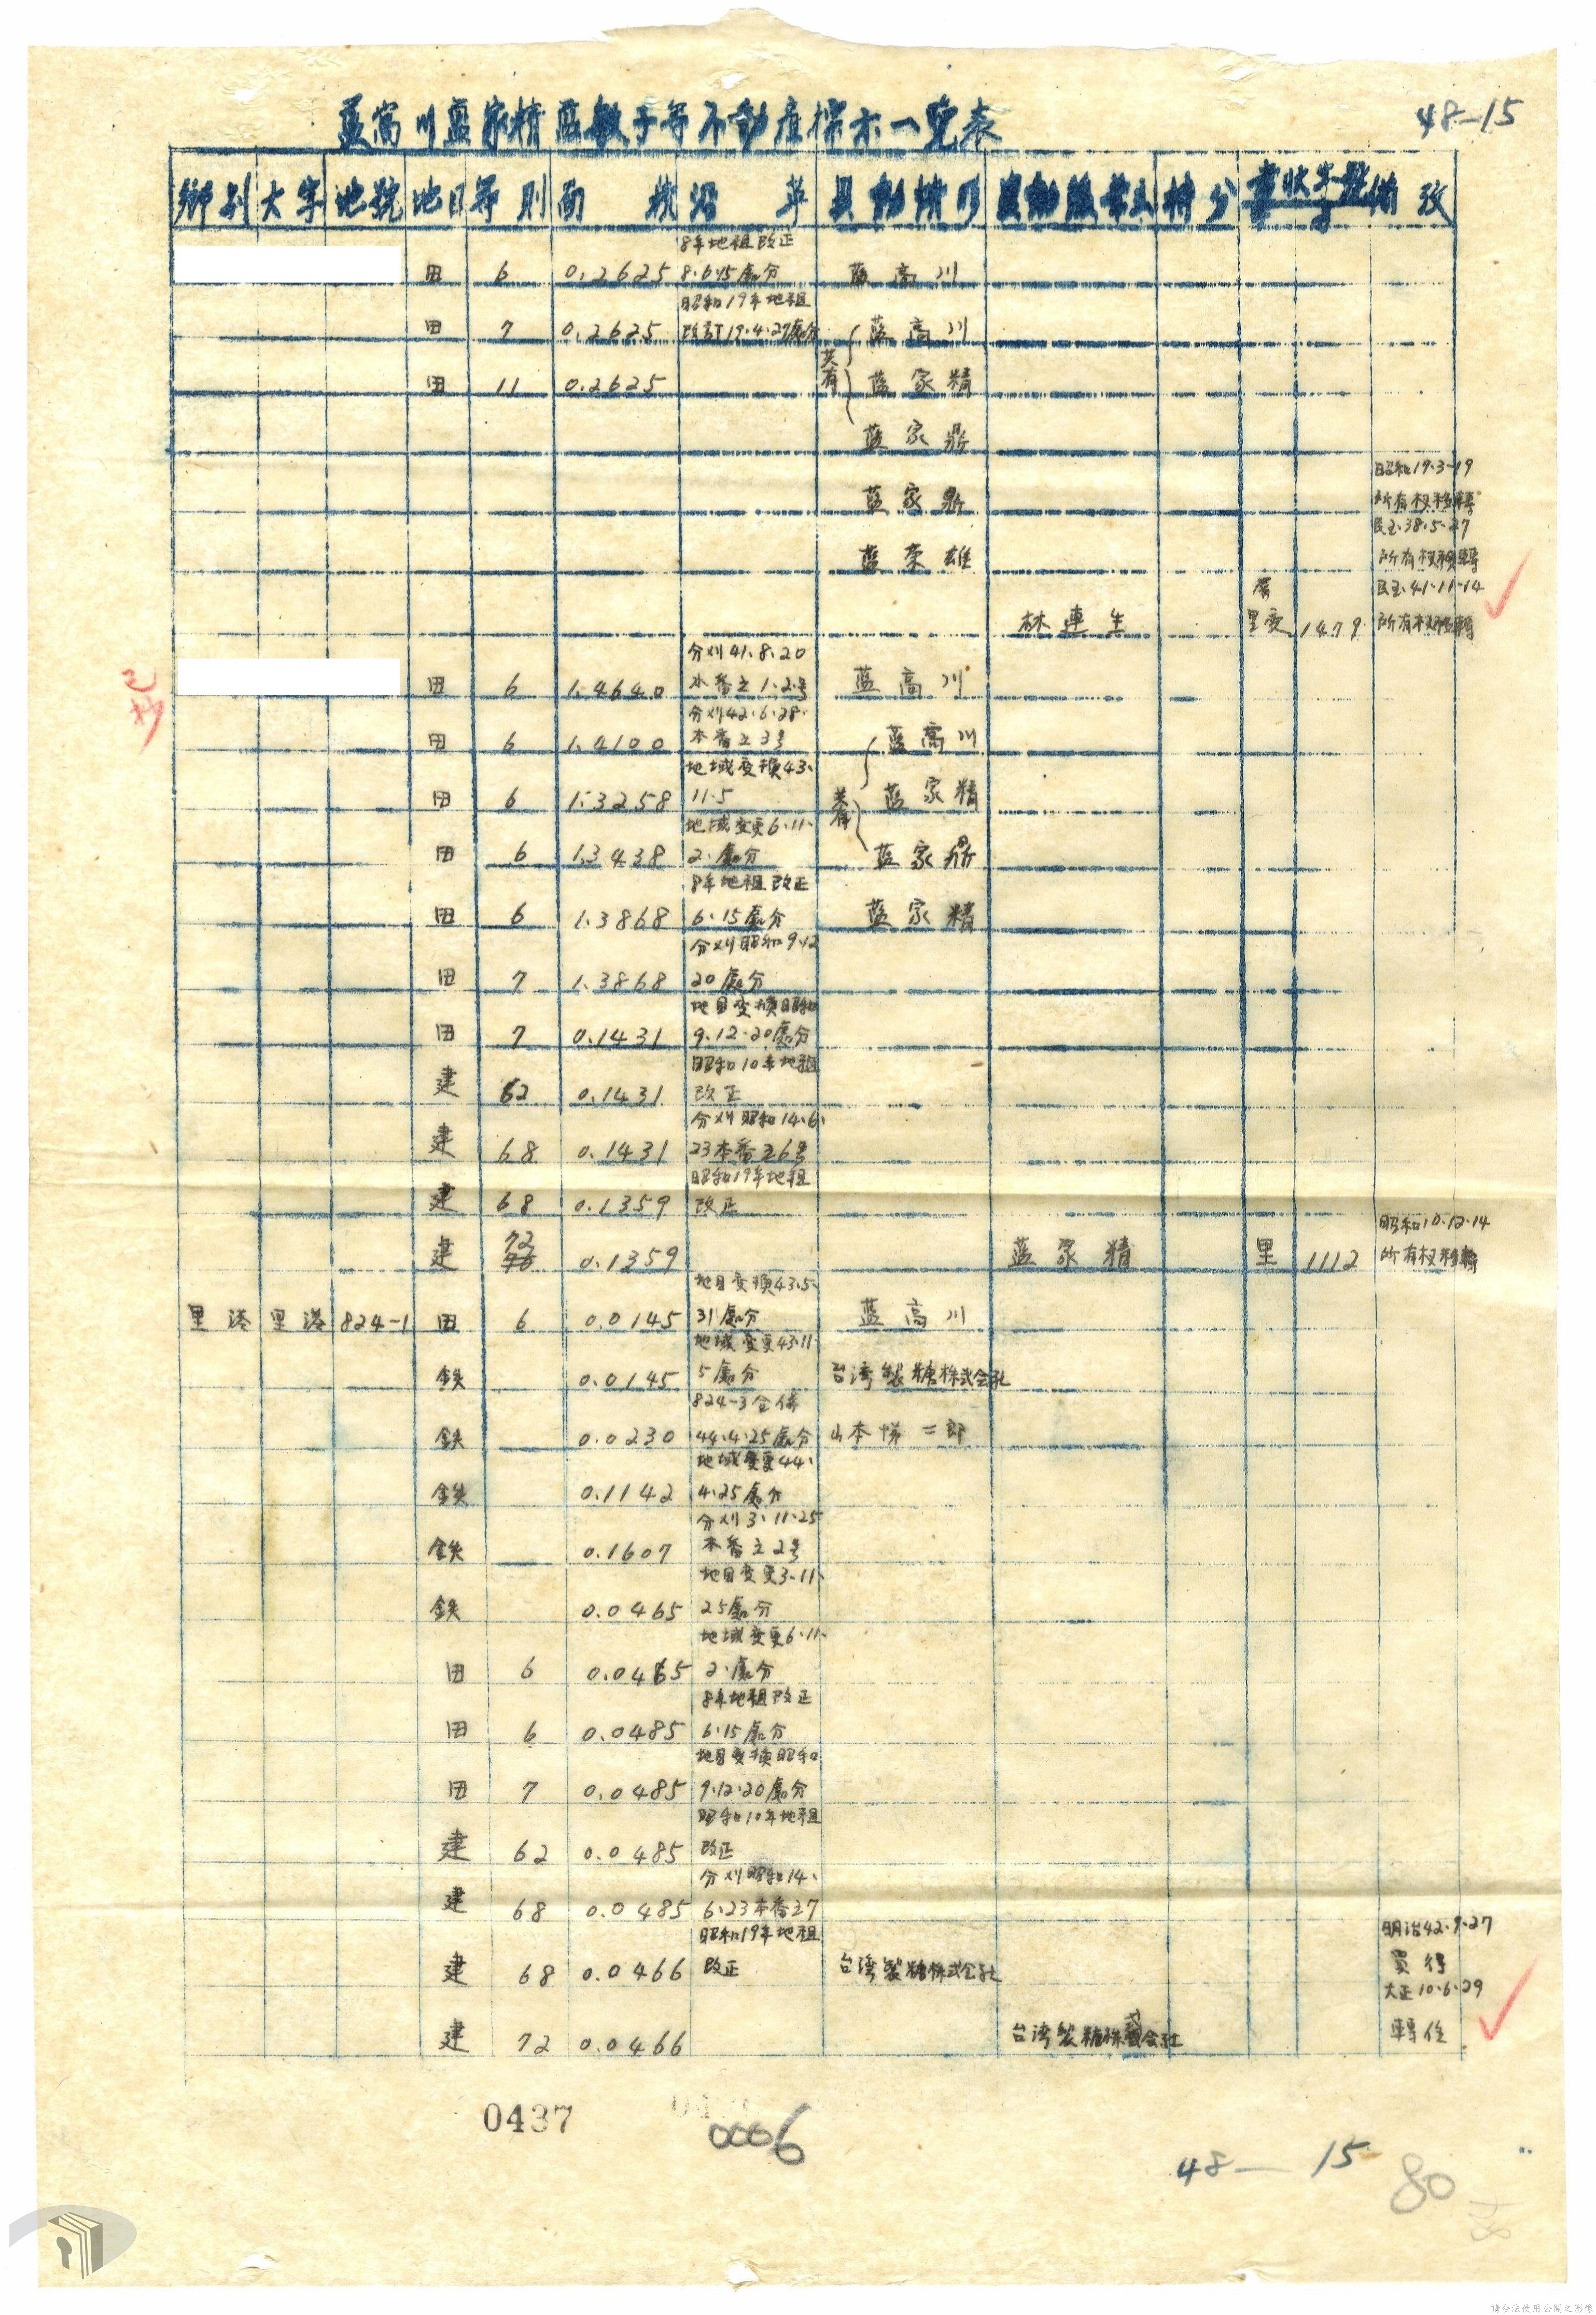 藍高川藍家精藍敏子等不動產標示一覽表
48-15
鄉別 大字 地號 地目 等則 面積 沿革 異動情形 持分 書狀字號 備攷
8年地租改正
田 6 0.2625 8.6.15處分 藍高川
昭和19年地租
田 7 0.2625 改訂19.4.27處分 藍高川
共有
田 11 0.2625 藍家精
藍家鼎
昭和19.3-19
藍家鼎 所有权移轉
民國38.5.27
藍荣雄 所有权移轉
民國41.11.14
林連生 里 1479 所有权移轉
分刈41.8.20
田 6 1.4640 本番之1.2号 藍高川
分刈42.6.28.
田 6 1.4100 本番之3号 藍高川
地域变換43.
田 6 1.3258 11.5 共有 藍家精
地域变更6.11.
田 6 1.3438 2.處分 藍家鼎
8年地租改正
田 6 1.3868 6.15處分 藍家精
分刈昭和9.12
田 7 1.3868 20處分
地目变換昭和
田 7 0.1431 9.12.20處分
昭和10年地租
建 62 0.1431 改正
分刈昭和14.6.
建 68 0.1431 23本番之6号
昭和19年地租
建 68 0.1359 改正
昭和10.12.14
建 72 0.1359 藍家精 里 1112 所有权移轉
地目变換43.5.
里港 里港 824-1 田 6 0.0145 31處分 藍高川
地域变更43.11
鉄 0.0145 5處分 台湾製糖株式会社
824-3合併
鉄 0.0230 44.4.25處分 山本悌二郎
地域变更44.
鉄 0.1142 4.25處分
分刈3.11.25
鉄 0.1607 本番之2号
地目变更3.11.
鉄 0.0465 25處分
地域变更6.11.
田 6 0.0465 2.處分
8年地租改正
田 6 0.0485 6.15處分
地目变換昭和
田 7 0.0485 9.12.20處分
昭和10年地租
建 62 0.0485 改正
分刈昭和14.
建 68 0.0485 6.23本番之7
昭和19年地租
明治42.9.27
建 68 0.0466 改正 台湾製糖株式会社 買得
大正10.6.29
建 72 0.0466 台湾製糖株式会社 轉住
0437
0006
48-15
80
請合法使用公開之影像